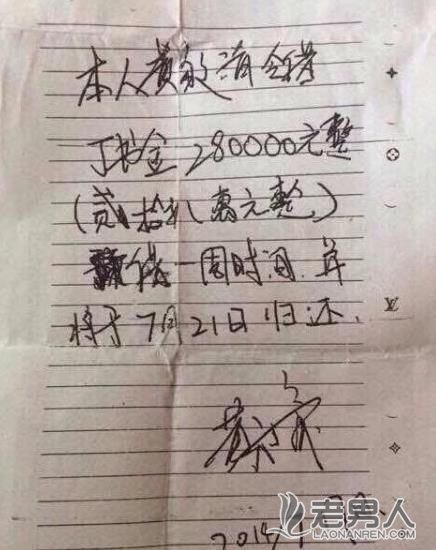 本人黄毅清今借
280000元整
(贰拾捌萬元整)
一周时间.并
将于7月21日归还.
2014
老男人
LAONANREN.COM